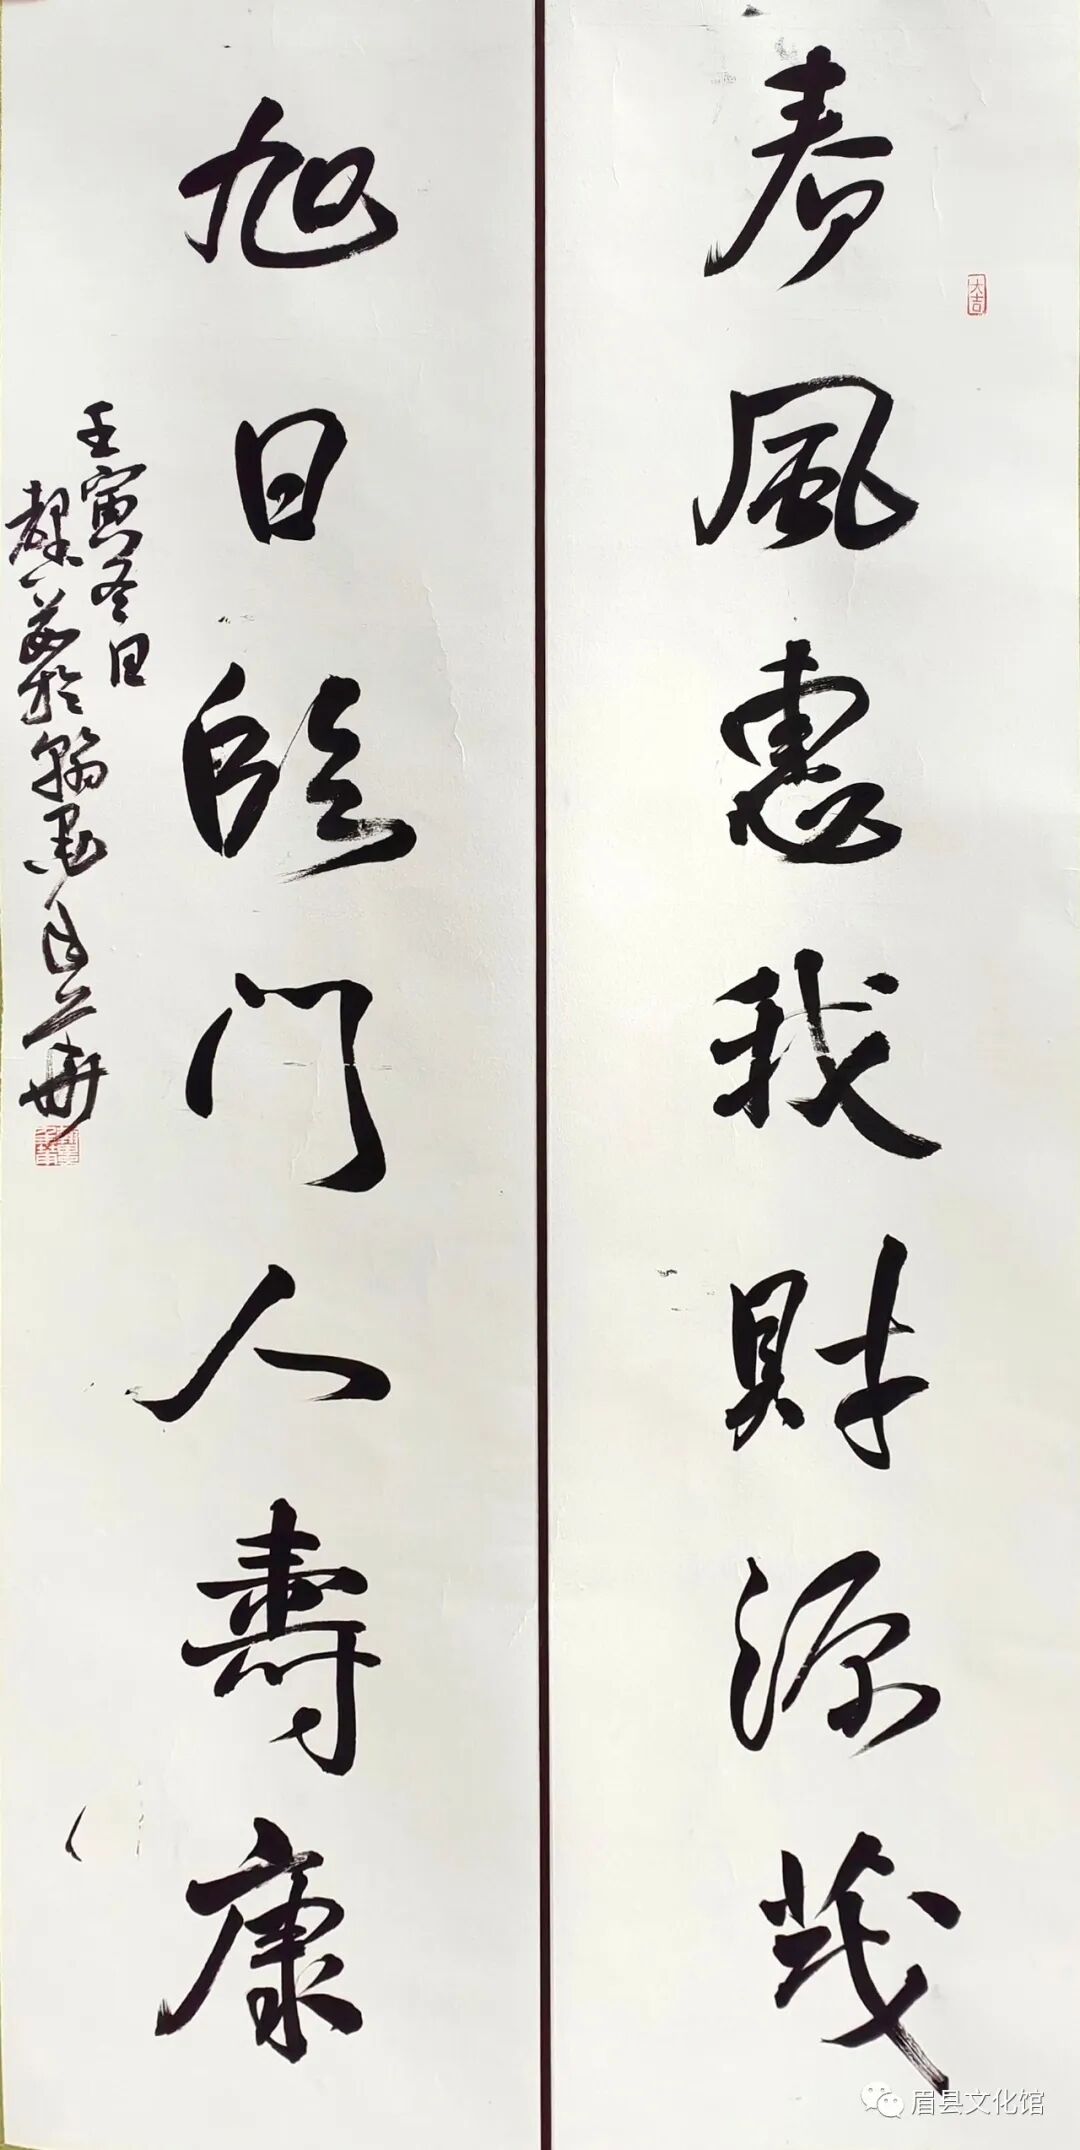 春風惠我財源茂
大吉
旭日臨門人壽康
壬寅冬日
於翰墨
眉县文化馆